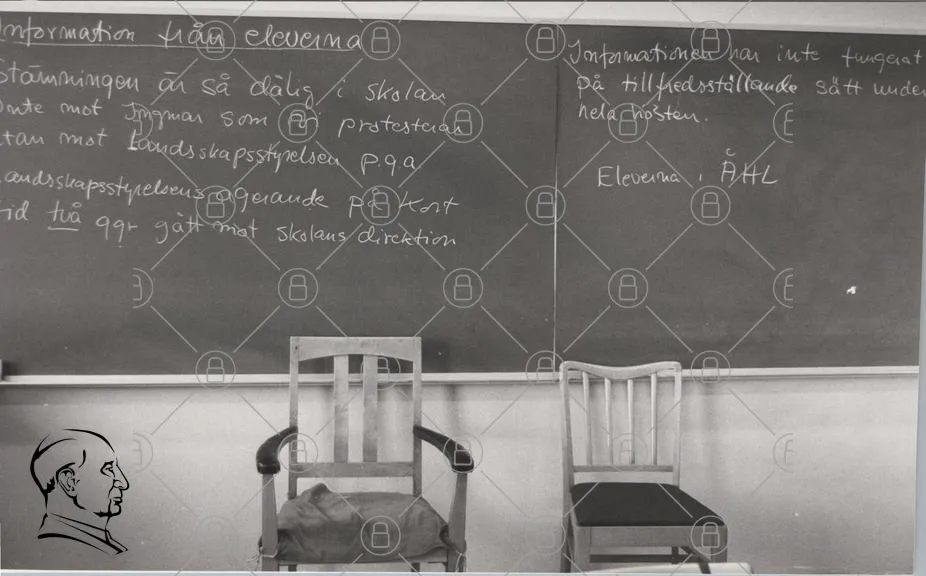 Information från eleverna
Stämningen är så dålig i skolan
inte mot Ingmar som vi protesterar
utan mot Landsskapsstyrelsen p.g.a
Landsskapsstyrelsens agerande på kort
tid två ggr gått mot skolans direktion
Informationen har inte fungerat
på tillfredsställande sätt under
hela hösten.
Eleverna i ÅHL